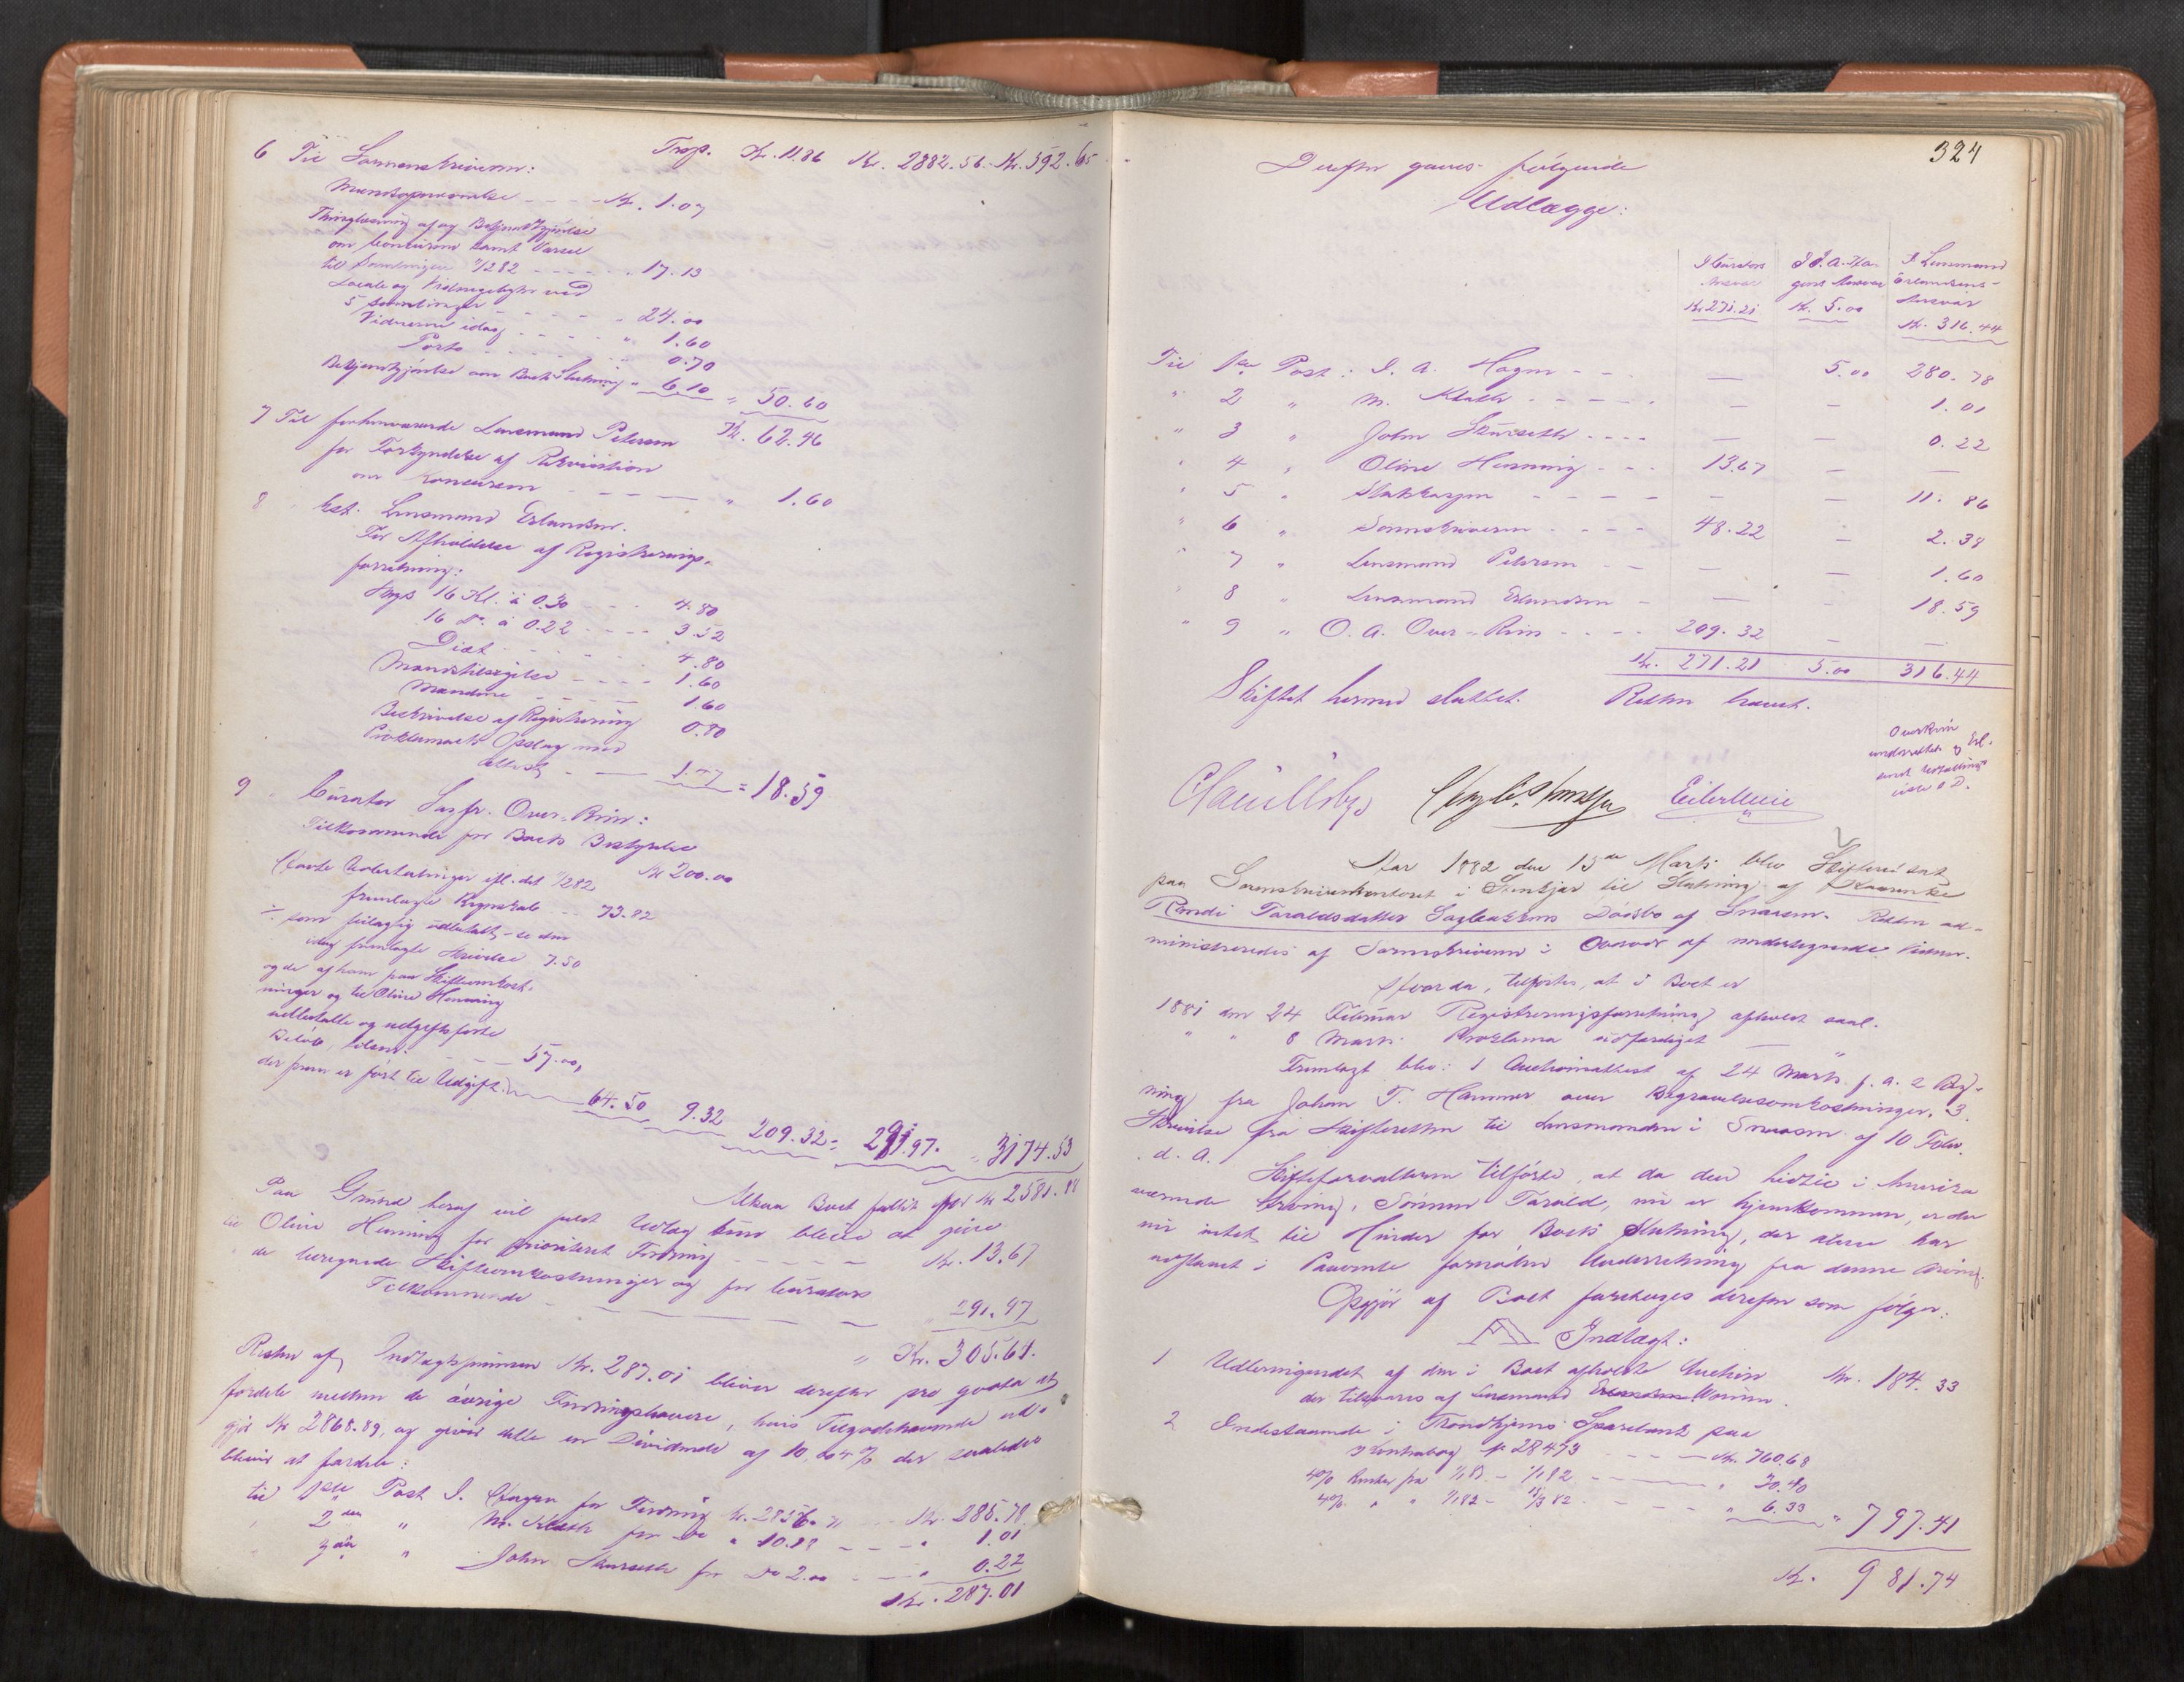 Trsp. Kr. 11.86 Kr. 2882.56. Kr. 592.65
6 Til Sorenskriveren:
Kr. 1.07
Thinglæsning af og Bekjendtgjørelse
om Concursen samt Varsel
til Samlingen 2/12 82 - - - - „ 17.13
Locale og Vidnegebyhr ved
5 Samlinger - - - - „ 24.00
Vidnerne idag - - - - „ 1.60
Porto - - - - 0.70
Bekjendtgjørelse om Boets Slutning „ 6.10 „ 50.60
Kr. 62.46
7 Til forhenværende Lensmand Petersen
for Forkyndelse af Rekvisition
om Konkursen - - - „ 1.60
8 „ kst. Lensmand Erlandsen.
For Afholdelse af Registrerings-
forretning:
16 Kl. à 0.30 - - - 4.80
16 Do. à 0.22 - - - - 3.52
Diæt - - - - 4.80
Mandstilsigelse - - - - 1.60
Mændene - - - - 1.60
Beskrivelse af Registrering 0.80
Proklamaets Opslag med
Attest - - 1.47 = 18.59
9 „ Curator Sagfr. Over-Rein:
Tilkommende for Boets Bestyrelse
Kr 200.00
fremlagte Regnskab - - 73.82
÷ som feilagtig udbetalt - se den
idag fremlagte Skrivelse 7.50
og de af ham paa Skifteomkost-
ninger og til Oline Henning
udbetalte og udgiftsførte
Beløb, - - - 57.00,
der frem er ført til Udgift. 64.50 9.32 209.32 = 291.97. „ 3174.53
Altsaa Boet fallit for Kr 2581.88
Paa Grund heraf vil fuldt Udlæg kun blive at give
til Oline Henning for prioriteret Fordring - - - - Kr. 13.67
de beregnede Skifteomkostninger og for Curators
Tilkommende - - - „ 291.97
„ Kr. 305.64.
Resten af Indtægtssummen Kr. 287.01 bliver derefter pro qvota at
fordele mellem de øvrige Fordringshavere, hvis Tilgodehavende ud-
gjør Kr 2868.89, og giver dette en Dividende af 10,004 % der saaledes
bliver at fordele:
til 1ste Post J. Hagen for Fordring Kr. 2856.71 - - Kr. 285.78
„ 2den „ M. Kleth for do „ 10.18 - - - „ 1.01
„ 3die „ John Skurseth for Do 2.00 - - - „ 0.22
Kr. 287.01
324
Derefter gaves følgende
Udlægge:
I Curators
Ansvar
Kr. 271.21
I J. A. Ha-
gens Ansvar
Kr. 5.00
I Lensmand
Erlandsens
Ansvar
Kr. 316.44
Til 1ste Post: J. A. Hagen - - — 5.00 280.78
„ 2 „ M. Kleth - - - - - — — 1.01
„ 3 „ John Skurseth - - - - — — 0.22
„ 4 „ Oline Henning - - - 13.67 — —
„ 5 „ Statskassen - - - - — — 11.86
„ 6 „ Sorenskriveren - - - - 48.22 — 2.38
„ 7 „ Lensmand Petersen - - — — 1.60
„ 8 „ Lensmand Erlandsen - — — 18.59
„ 9 „ O. A. Over-Rein - - - - 209.32 — —
Kr. 271.21 5.00 316.44
Skiftet hermed sluttet. Retten hævet.
Overrein
underrettet og Erl.
sendt Udbetalings-
liste s. D.
Aar 1882 den 15de Marts blev Skifteret sat
paa Sorenskriverkontoret i Stenkjær til Slutning af
Randi Taraldsdatter Dødsbo af Snaasen. Retten ad-
ministreredes af Sorenskriveren i Overvær af undertegnede Vidner.
Hvorda, tilførtes, at i Boet er
1881 den 24 Februar Registreringsforretning afholdt saal.
„ „ 8 Marts Proklama udfærdiget — „
Fremlagt blev: 1 Auctionsattest af 24 Marts f. A. 2 Reg-
ning fra Johan T. Hammer over Begravelsesomkostninger. 3.
Skrivelse fra Skifteretten til Lensmanden i Snaasen af 10 Febr.
d. A.
Skifteforvalteren tilførte, at da den hidtil i Amerika
værende Arving, Sønnen Tarald, nu er hjemkommen, er der
nu intet til Hinder for Boets Slutning, der alene har
udstaaet i Paavente formedelst Underretning fra denne Arving.
Opgjør af Boet foretoges derefter som følger:
A Indtægt:
1 Udbringendet af den i Boet afholdte Auction Kr. 184.33
der tilsvares af Lensmand
2 Indestaaende i Trondhjems Sparebank paa
Kontrabog № 28473 - - - Kr. 760.68
4% Renter fra 1/1 81 - 1/1 82 - - - „ 30.40
4% „ „ 1/1 82 - 15/3 82 - - - - „ 6.33 „ 797.41
Kr. 981.74